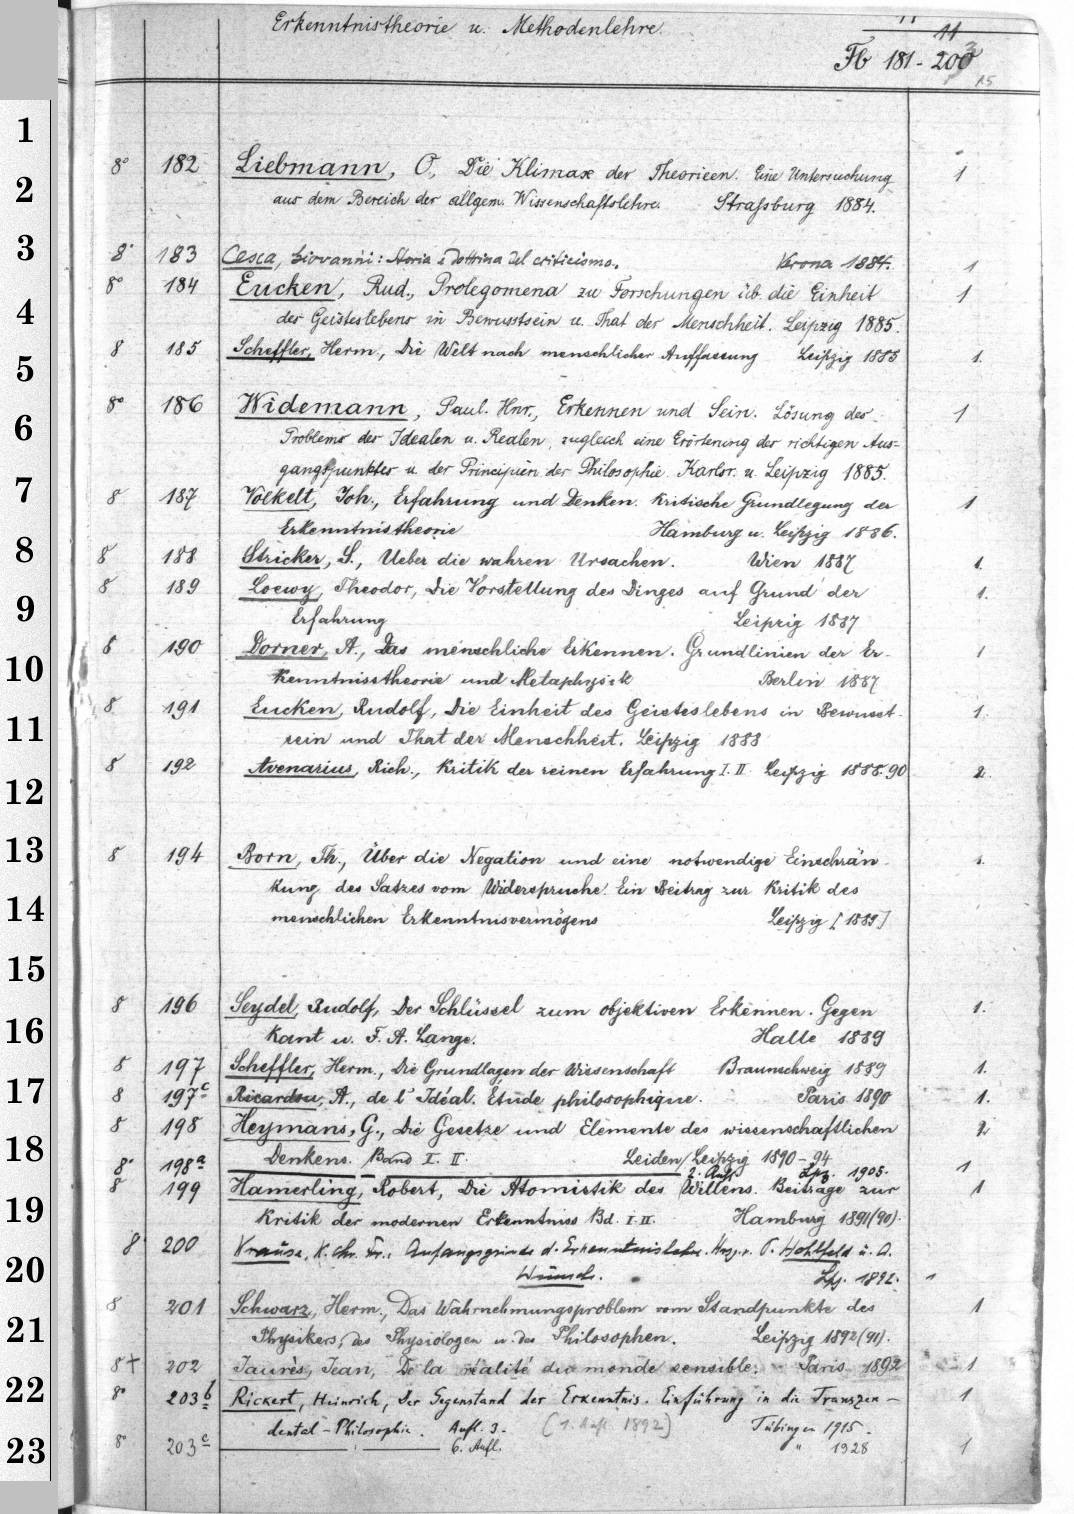 Erkenntnistheorie u. Methodenlehre.
11
11
Fb 181 - 203
15
1
8° 182 Liebmann, O., Die Klimax der Theorieen. Eine Untersuchung 1
2
aus dem Bereich der allgem. Wissenschaftslehre. Straßburg 1884.
3
8° 183 Cesca, Giovanni: Storia e dottrina del criticismo. Verona 1884. 1
8° 184 Eucken, Rud., Prolegomena zu Forschungen üb. die Einheit 1
4
des Geisteslebens in Bewusstsein u. That der Menschheit. Leipzig 1885.
8 185 Scheffler, Herm., Die Welt nach menschlicher Auffassung Leipzig 1885 1.
5
8° 186 Widemann, Paul. Hnr., Erkennen und Sein. Lösung des 1
6
Problems des Idealen u. Realen, zugleich eine Erörterung des richtigen Aus-
gangspunktes u. der Principien der Philosophie. Karlsr. u. Leipzig 1885.
7
8 187 Volkelt, Joh., Erfahrung und Denken. Kritische Grundlegung der 1
Erkenntnistheorie Hamburg u. Leipzig 1886.
8
8 188 Stricker, S., Ueber die wahren Ursachen. Wien 1887 1.
8 189 Loewy, Theodor, Die Vorstellung des Dinges auf Grund der 1.
9
Erfahrung Leipzig 1887
8 190 Dorner, A., Das menschliche Erkennen. Grundlinien der Er- 1
10
kenntnisstheorie und Metaphysik Berlin 1887
8 191 Eucken, Rudolf, Die Einheit des Geisteslebens in Bewusst- 1.
11
sein und That der Menschheit. Leipzig 1888
8 192 Avenarius, Rich., Kritik der reinen Erfahrung I. II. Leipzig 1888.90 2.
12
13
8 194 Born, Th., Über die Negation und eine notwendige Einschrän- 1.
kung des Satzes vom Widerspruche. Ein Beitrag zur Kritik des
14
menschlichen Erkenntnisvermögens Leipzig [1889]
15
8 196 Seydel, Rudolf, Der Schlüssel zum objektiven Erkennen. Gegen 1.
16
Kant u. F. A. Lange. Halle 1889
8 197 Scheffler, Herm., Die Grundlagen der Wissenschaft Braunschweig 1889 1.
17
8 197c Ricardou, A., de l'Idéal. Étude philosophique. Paris 1890 1.
8 198 Heymans, G., Die Gesetze und Elemente des wissenschaftlichen 2
18
Denkens. Band I. II. Leiden/Leipzig 1890-94
8° 198a 2. Aufl. Lpz. 1905. 1
8 199 Hamerling, Robert, Die Atomistik des Willens. Beiträge zur 1
19
Kritik der modernen Erkenntniss Bd. I. II. Hamburg 1891(90).
8° 200 Krause, K. Chr. Fr.: Anfangsgründe d. Erkenntnislehre. Hrsg. v. P. Hohlfeld u. A.
20
Wünsche. Lpz. 1892. 1
8 201 Schwarz, Herm., Das Wahrnehmungsproblem vom Standpunkte des 1
21
Physikers, des Physiologen u. des Philosophen. Leipzig 1892(91).
8+ 202 Jaurès, Jean, De la réalité du monde sensible. Paris 1892 1
22
8° 203b Rickert, Heinrich, Der Gegenstand der Erkenntnis. Einführung in die Transzen- 1
dental-Philosophie. Aufl. 3. [1. Aufl. 1892] Tübingen 1915.
23
8° 203c 6. Aufl. " 1928 1